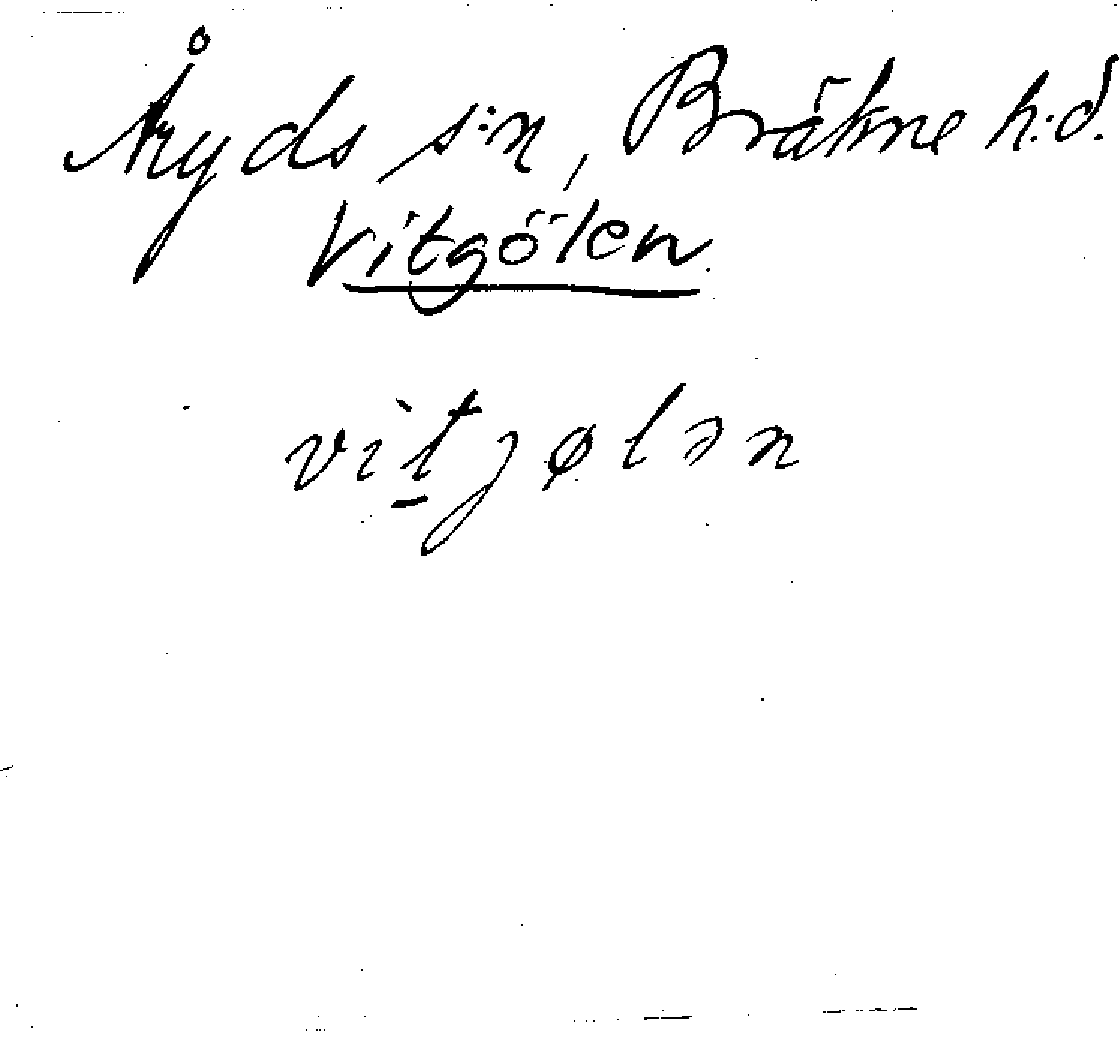 Åryds s:n, Bräkne h:d.
Vitgölen
vìt̠jølən